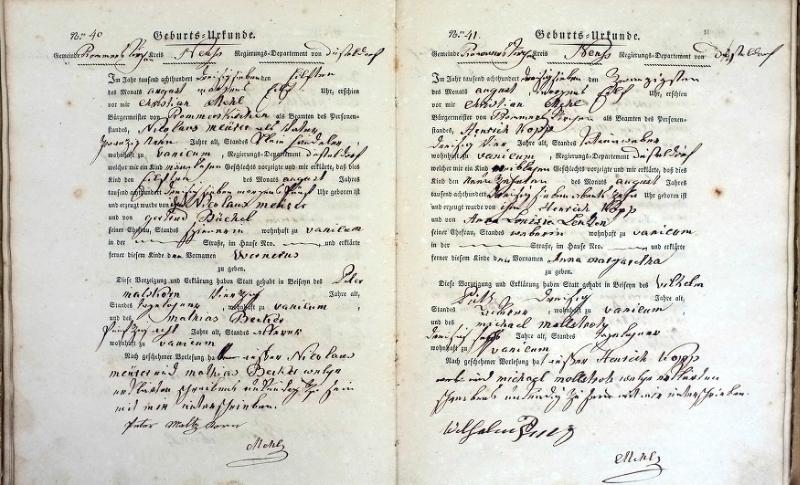 Nro 40 Geburts-Urkunde.
Gemeinde Rommerskirchen Kreis Neuß Regierungs-Departement von Düsseldorf
Im Jahr tausend achthundert dreißigsieben den eilften
des Monats august morgens eilf Uhr, erschien
vor mir Christian Mehl
Bürgermeister von Rommerskirchen als Beamten des Personen-
standes, Nicolaus meurer als Vater
zwanzig Jahr alt, Standes
wohnhaft zu vanicum, Regierungs-Departement Düsseldorf
welcher mir ein Kind Geschlechts vorzeigte und mir erklärte, daß dies
Kind den eilften des Monats august Jahres
tausend achthundert dreißigsieben morgens fünf Uhr geboren ist
und erzeugt wurde von ihm Nicolaus meurer
und von gertrud Büchel
seiner Ehefrau, Standes wohnhaft zu vanicum
in der Straße, im Hause Nro. und erklärte
ferner diesem Kinde den Vornamen Wernerus
zu geben.
Diese Vorzeigung und Erklärung haben Statt gehabt in Beiseyn des Peter
vierzig Jahre alt,
Standes tagelöhner wohnhaft zu vanicum
und des mathias Becker
Jahre alt, Standes
wohnhaft zu vanicum
Nach geschehener Vorlesung haben außer Nicolaus
meurer und mathias Becker welche
erklärten schreibens unkundig zu sein
mit mir unterschrieben.
Peter
Mehl
Nro 41. Geburts-Urkunde.
Gemeinde Rommerskirchen Kreis Neuß Regierungs-Departement von Düsseldorf
Im Jahr tausend achthundert dreißigsieben den zwanzigsten
des Monats august, morgens eilf Uhr, erschien
vor mir Christian Mehl
Bürgermeister von Rommerskirchen als Beamten des Personen-
standes, Henrich Kopp
dreißig vier Jahre alt, Standes
wohnhaft zu vanicum, Regierungs-Departement Düsseldorf
welcher mir ein Kind weiblichen Geschlechts vorzeigte und mir erklärte, daß dies
Kind den des Monats august Jahres
tausend achthundert dreißigsieben abends zehn Uhr geboren ist
und erzeugt wurde von ihm Henrich Kopp
und von Anna Louisia
seiner Ehefrau, Standes weberin wohnhaft zu vanicum
in der Straße, im Hause Nro. und erklärte
ferner diesem Kinde den Vornamen Anna margaretha
zu geben.
Diese Vorzeigung und Erklärung haben Statt gehabt in Beiseyn des Wilhelm
dreißig Jahre alt,
Standes wohnhaft zu vanicum
und des michael
dreißig Jahre alt, Standes tagelöhner
wohnhaft zu vanicum
Nach geschehener Vorlesung hat außer Henrich Kopp
und michael welche erklärten
schreibens unkundig zu sein mit mir unterschrieben.
Wilhelm
Mehl